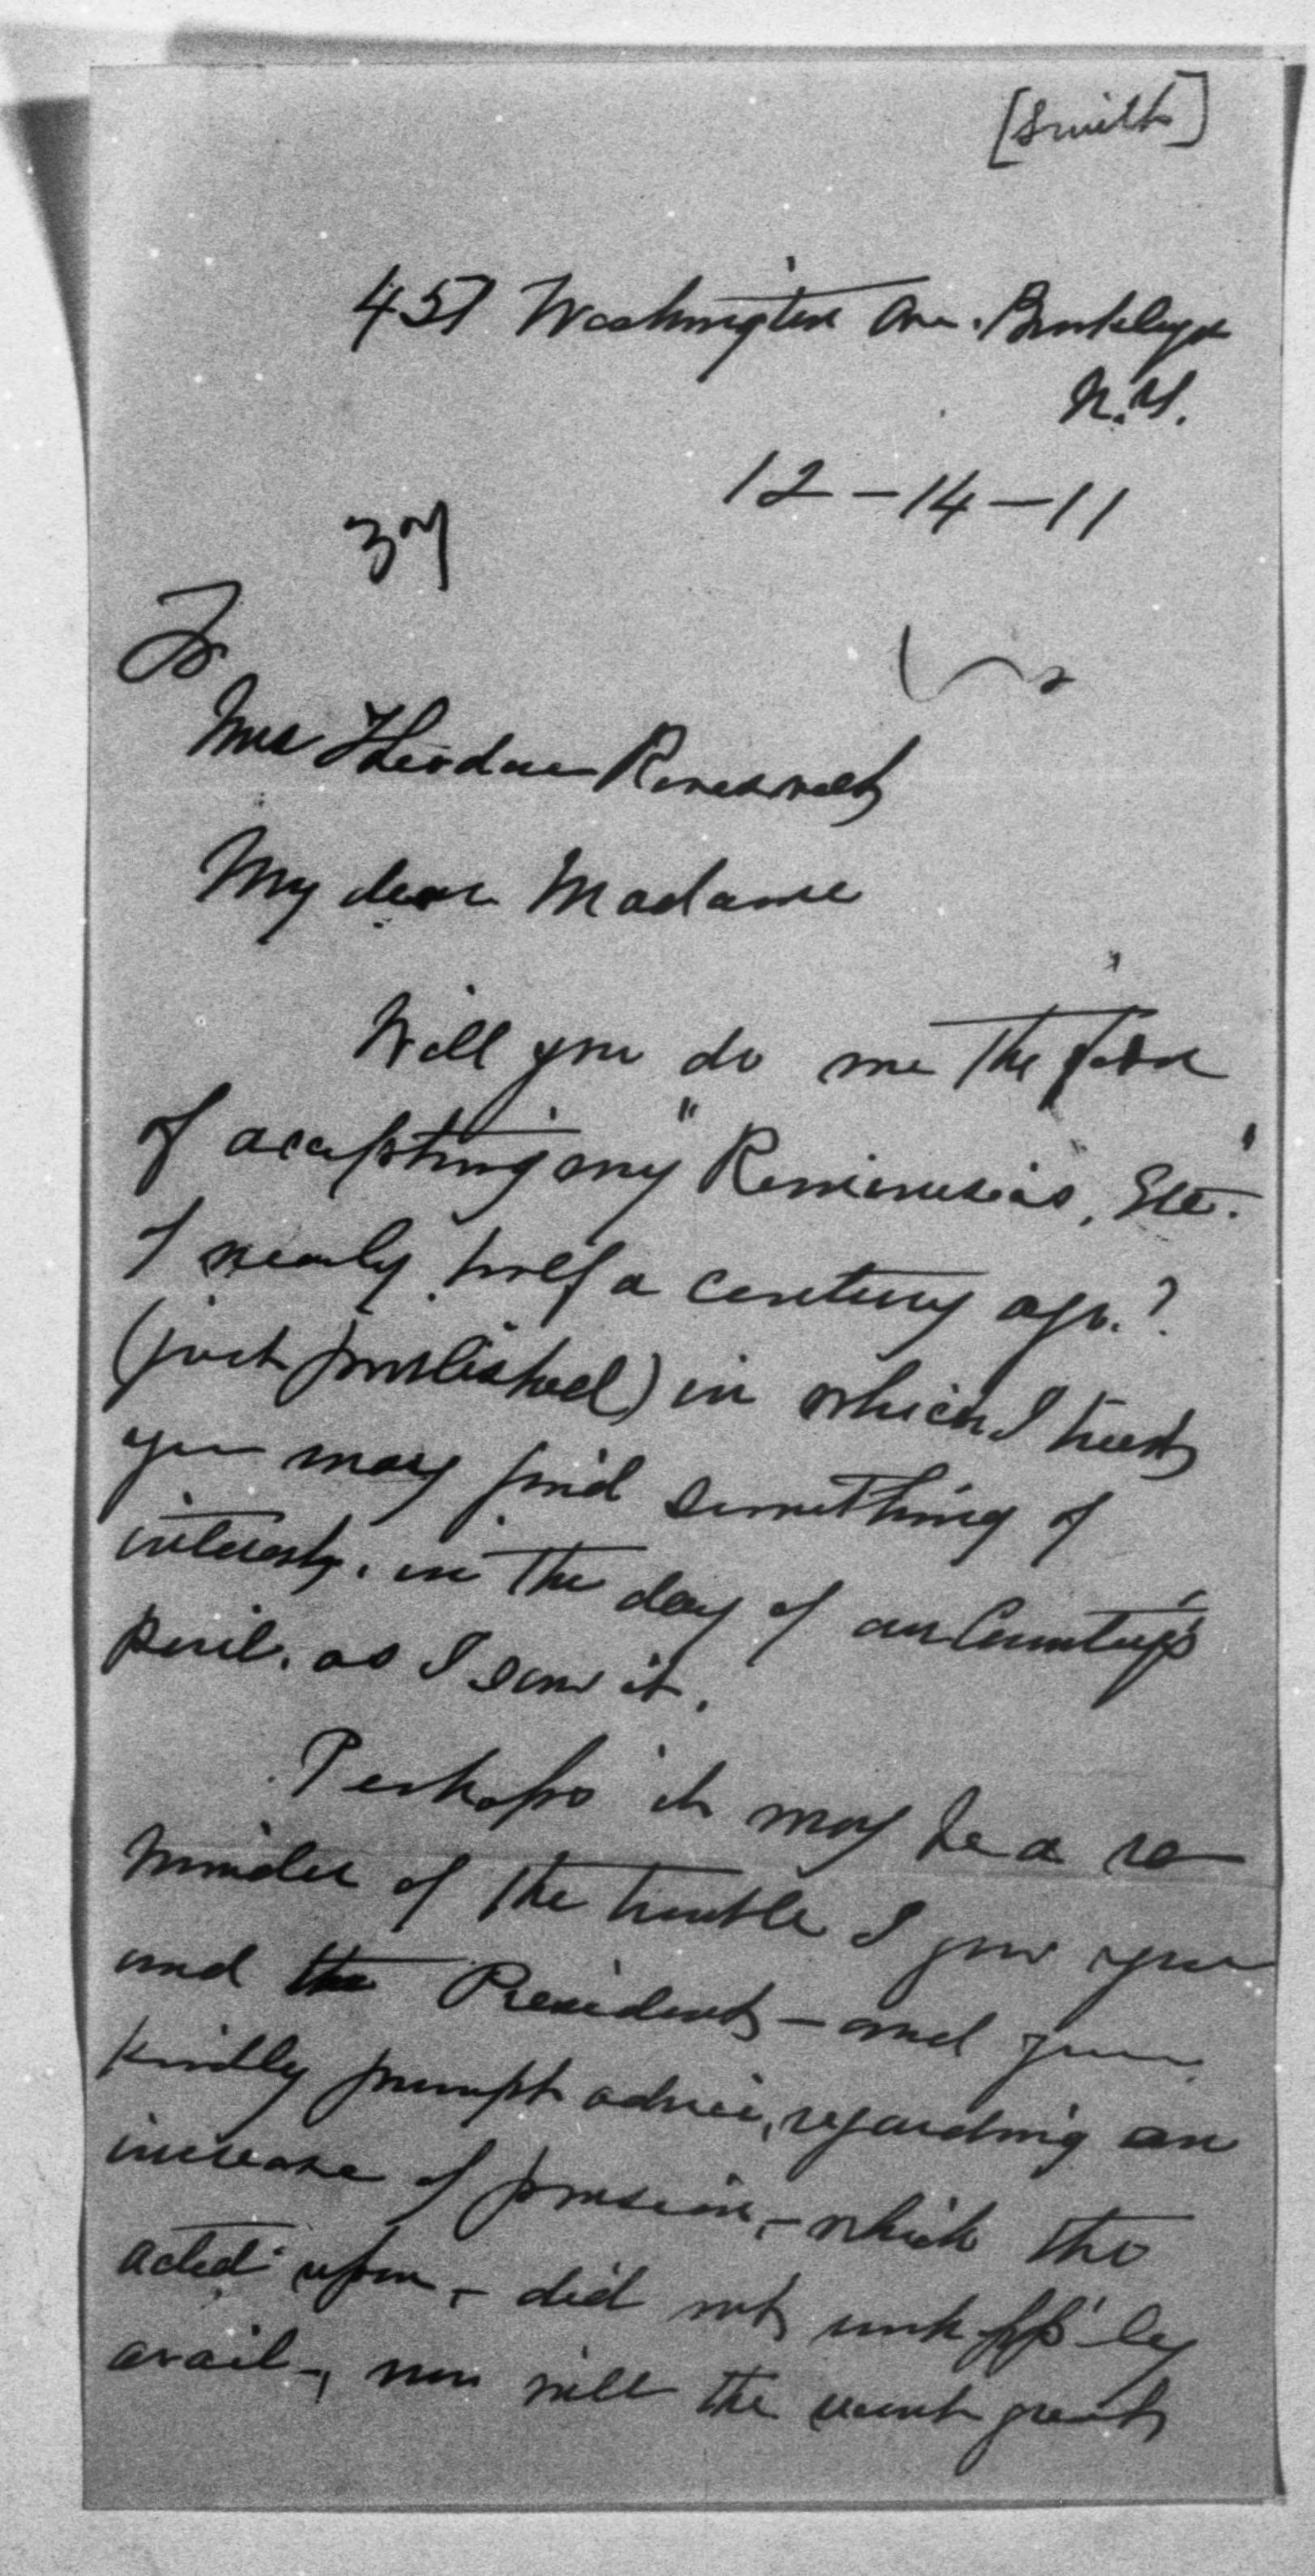 [Smith]
457 Washington Ave. Brooklyn
N.Y.
12-14-11
To
Mrs Theodore Roosevelt
My dear Madame
Will you do me the favor
of accepting my "Reminiscences, Etc."
of nearly half a century ago.?
(just published) in which I trust
you may find something of
interest, in the day of our Country's
peril, as I saw it.
Perhaps it may be a re
minder of the trouble I gave you
and the President - and your
kindly prompt advice, regarding an
increase of pension, - which tho
acted upon, - did not unhapp'ly
avail -, nor will the great